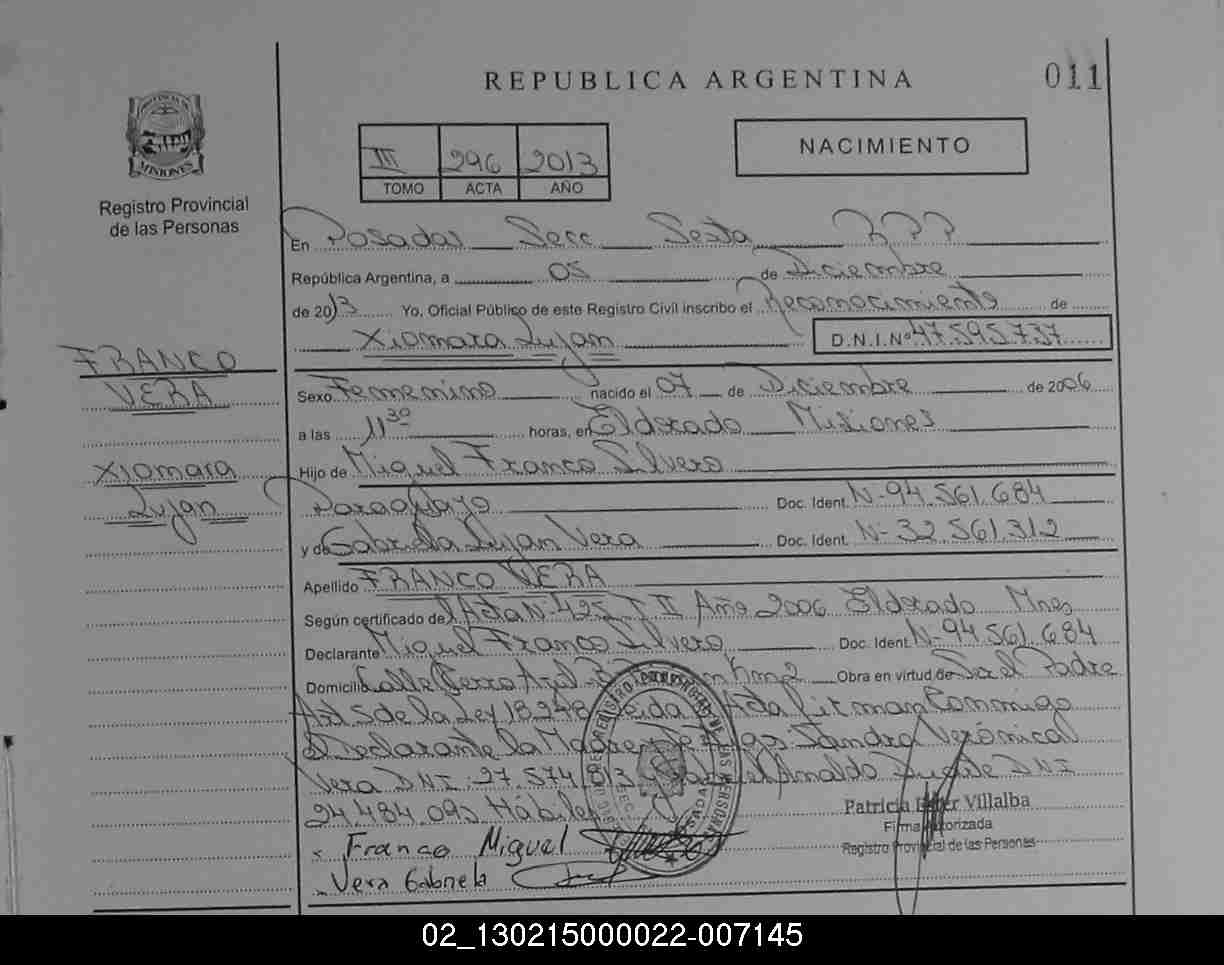 REPUBLICA ARGENTINA
011
PROVINCIA DE
MISIONES
Registro Provincial
de las Personas
III 296 2013
TOMO ACTA AÑO
NACIMIENTO
En Posadas Secc Sexta RPP
República Argentina, a 05 de Diciembre
de 2013 Yo, Oficial Público de este Registro Civil inscribo el Reconocimiento de
Xiomara Lujan D.N.I.Nº 47.595.737
FRANCO
VERA
Xiomara
Lujan
Sexo Femenino nacido el 07 de Diciembre de 2006
a las 11 30 horas, en Eldorado Misiones
Hijo de Miguel Franco Silvero
Paraguayo Doc. Ident. N- 94.561.684
y de Gabriela Lujan Vera Doc. Ident. N- 32.561.312
Apellido FRANCO VERA
Según certificado del Acta Nº 425 T II Año 2006 Eldorado Mnes
Declarante Miguel Franco Silvero Doc. Ident N- 94.561.684
Domicilio Calle Cerro Azul Obra en virtud de Ser el Padre
Art 5 de la Ley 18.248 Leida el Acta Firman Conmigo
el Declarante la Madre Sandra Verónica
Vera DNI: 27.574.813 y Arnaldo Duarte DNI
24.484.093 Hábiles
Patricia Villalba
Firma Autorizada
Registro Provincial de las Personas
x Franco Miguel
Vera Gabriela
02_130215000022-007145